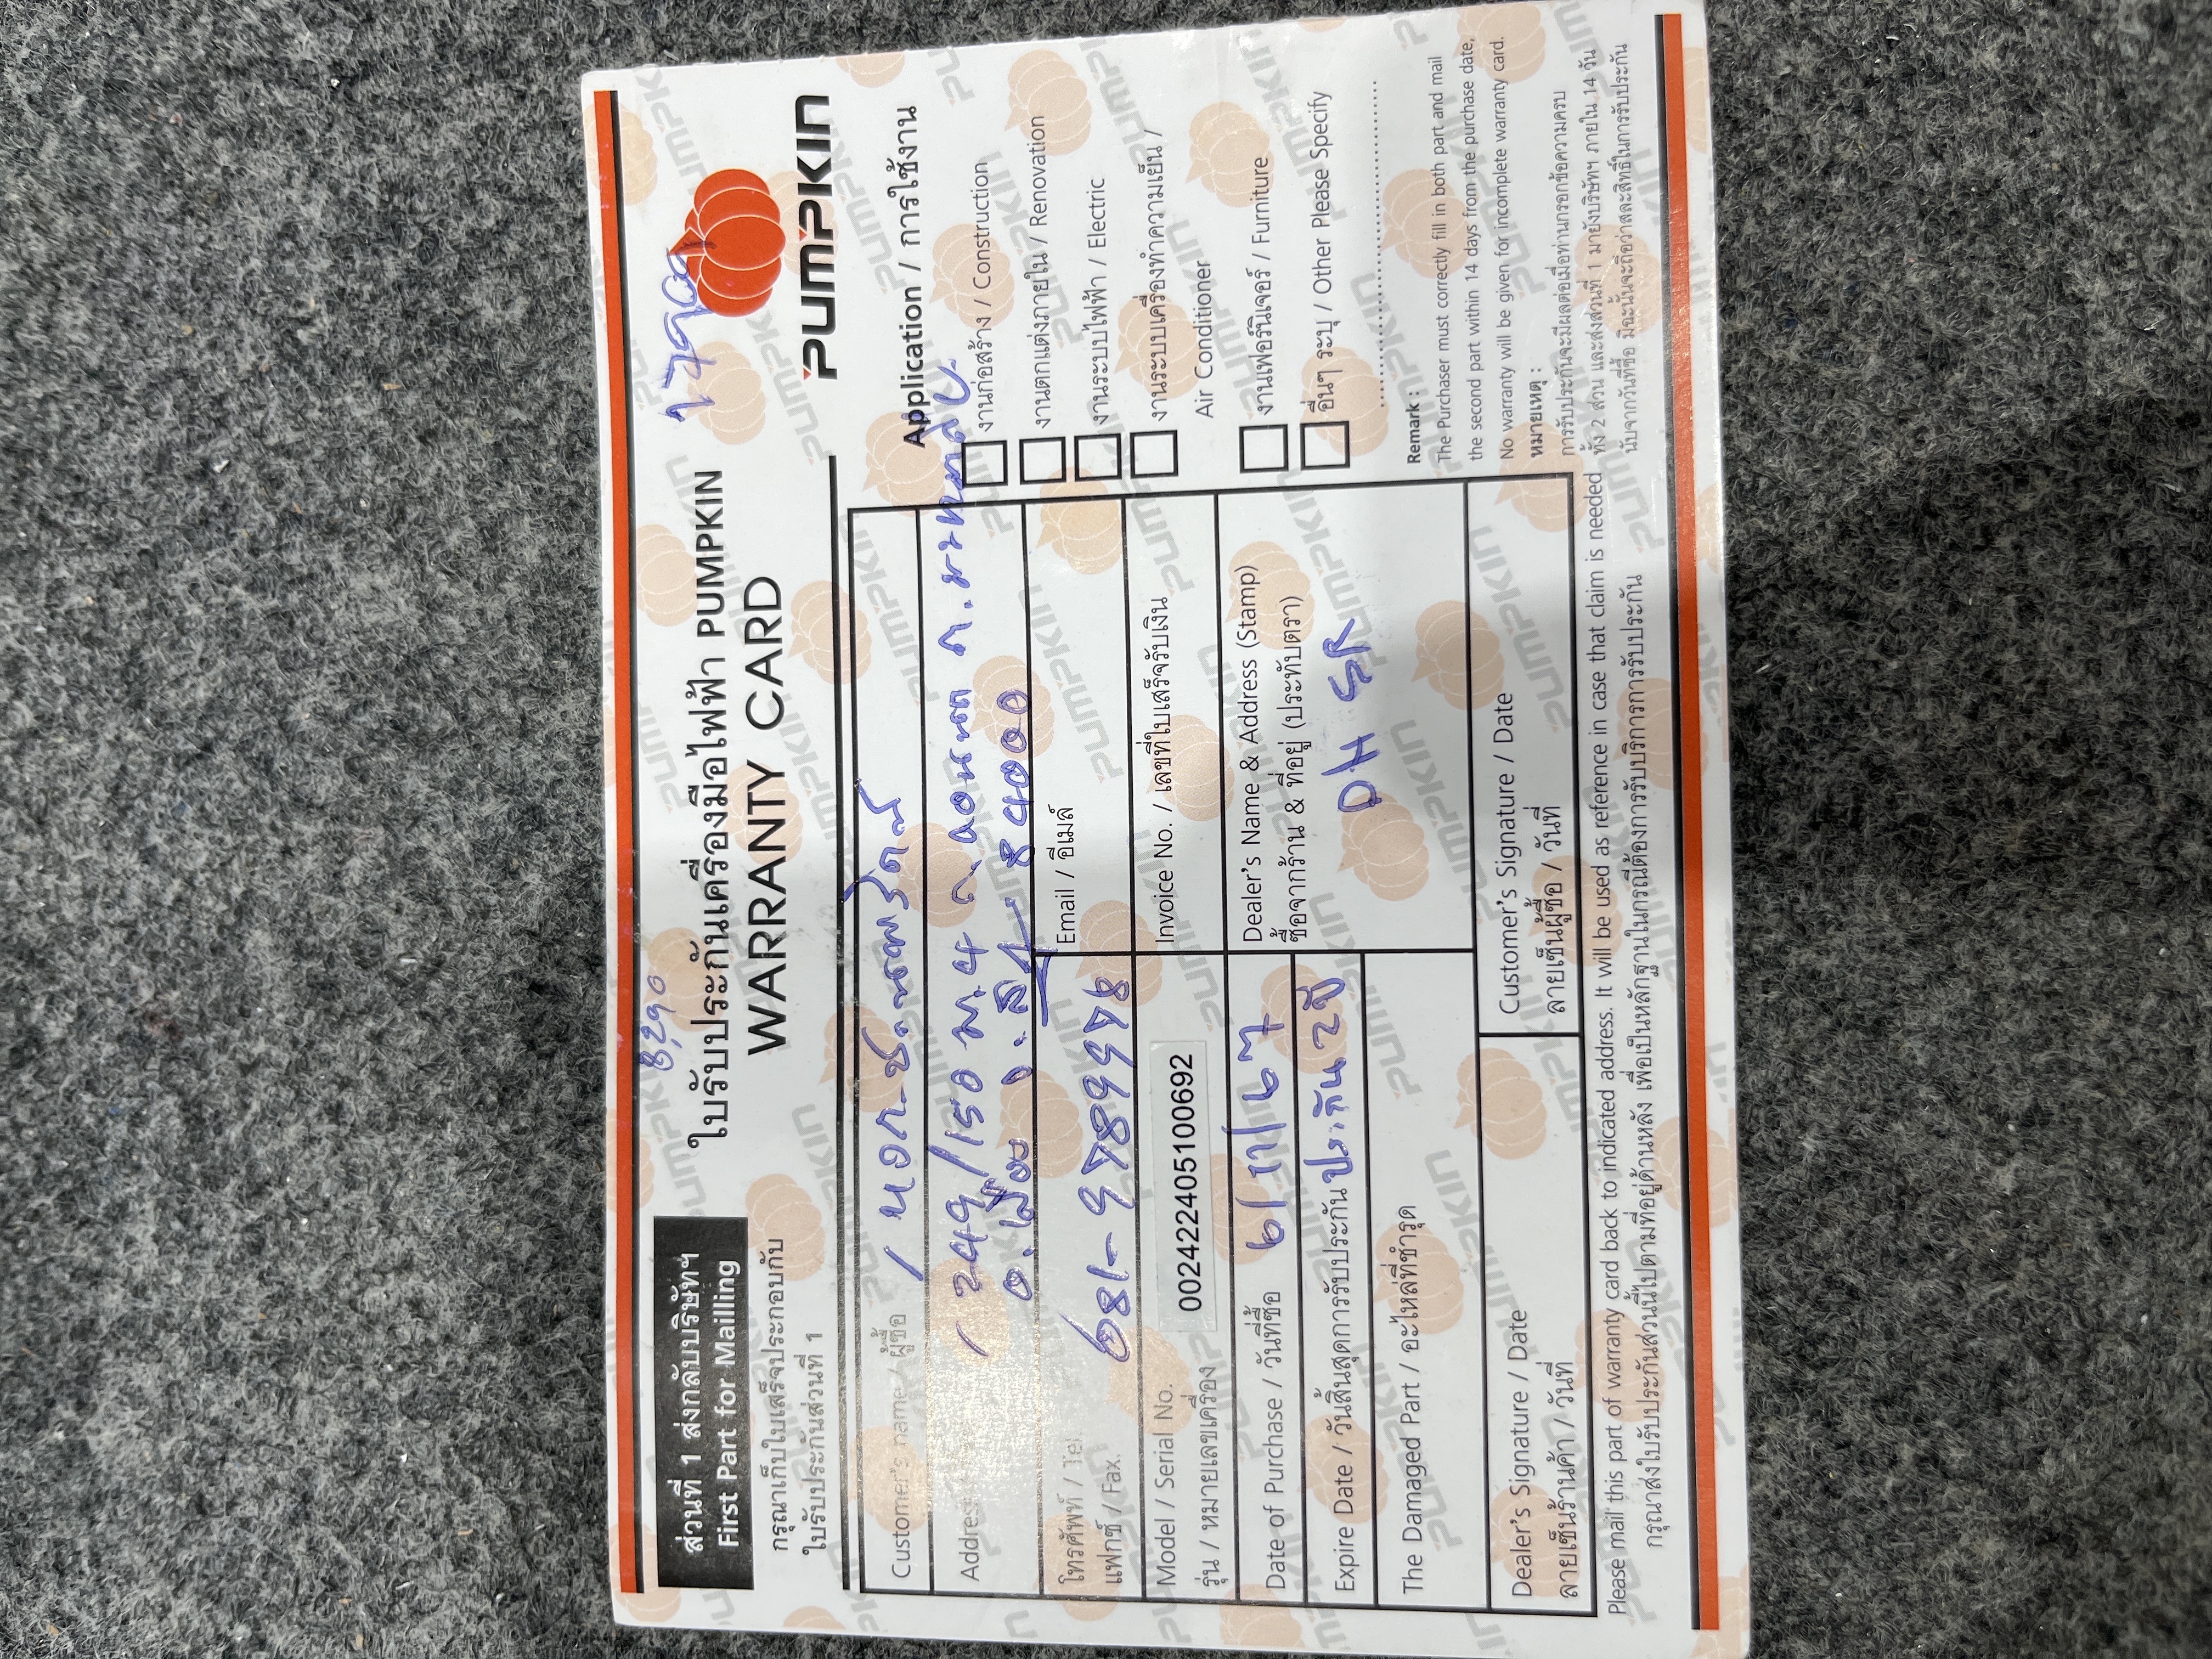 8,290
ส่วนที่ 1 ส่งกลับบริษัทฯ
First Part for Mailling
กรุณาเก็บใบเสร็จประกอบกับ
ใบรับประกันส่วนที่ 1
ใบรับประกันเครื่องมือไฟฟ้า PUMPKIN
WARRANTY CARD
PUMPKIN
Customer's name / ผู้ซื้อ
Address
249/150 ม.4
84000
โทรศัพท์ / Tel.
แฟกซ์ / Fax.
081-9789978
Email / อีเมล์
Model / Serial No.
รุ่น / หมายเลขเครื่อง
002422405100692
Invoice No. / เลขที่ใบเสร็จรับเงิน
Date of Purchase / วันที่ซื้อ
Expire Date / วันสิ้นสุดการรับประกัน ประกัน 2 ปี
The Damaged Part / อะไหล่ที่ชำรุด
Dealer's Name & Address (Stamp)
ซื้อจากร้าน & ที่อยู่ (ประทับตรา)
DH SR
Dealer's Signature / Date
ลายเซ็นร้านค้า / วันที่
Customer's Signature / Date
ลายเซ็นผู้ซื้อ / วันที่
Application / การใช้งาน
งานก่อสร้าง / Construction
งานตกแต่งภายใน / Renovation
งานระบบไฟฟ้า / Electric
งานระบบเครื่องทำความเย็น /
Air Conditioner
งานเฟอร์นิเจอร์ / Furniture
อื่นๆ ระบุ / Other Please Specify
Remark :
The Purchaser must correctly fill in both part and mail
the second part within 14 days from the purchase date,
No warranty will be given for incomplete warranty card.
หมายเหตุ :
การรับประกันจะมีผลต่อเมื่อท่านกรอกข้อความครบ
ทั้ง 2 ส่วน และส่งส่วนที่ 1 มายังบริษัทฯ ภายใน 14 วัน
นับจากวันที่ซื้อ มิฉะนั้นจะถือว่าสละสิทธิ์ในการรับประกัน
Please mail this part of warranty card back to indicated address. It will be used as reference in case that claim is needed
กรุณาส่งใบรับประกันส่วนนี้ไปตามที่อยู่ด้านหลัง เพื่อเป็นหลักฐานในกรณีต้องการรับบริการการรับประกัน